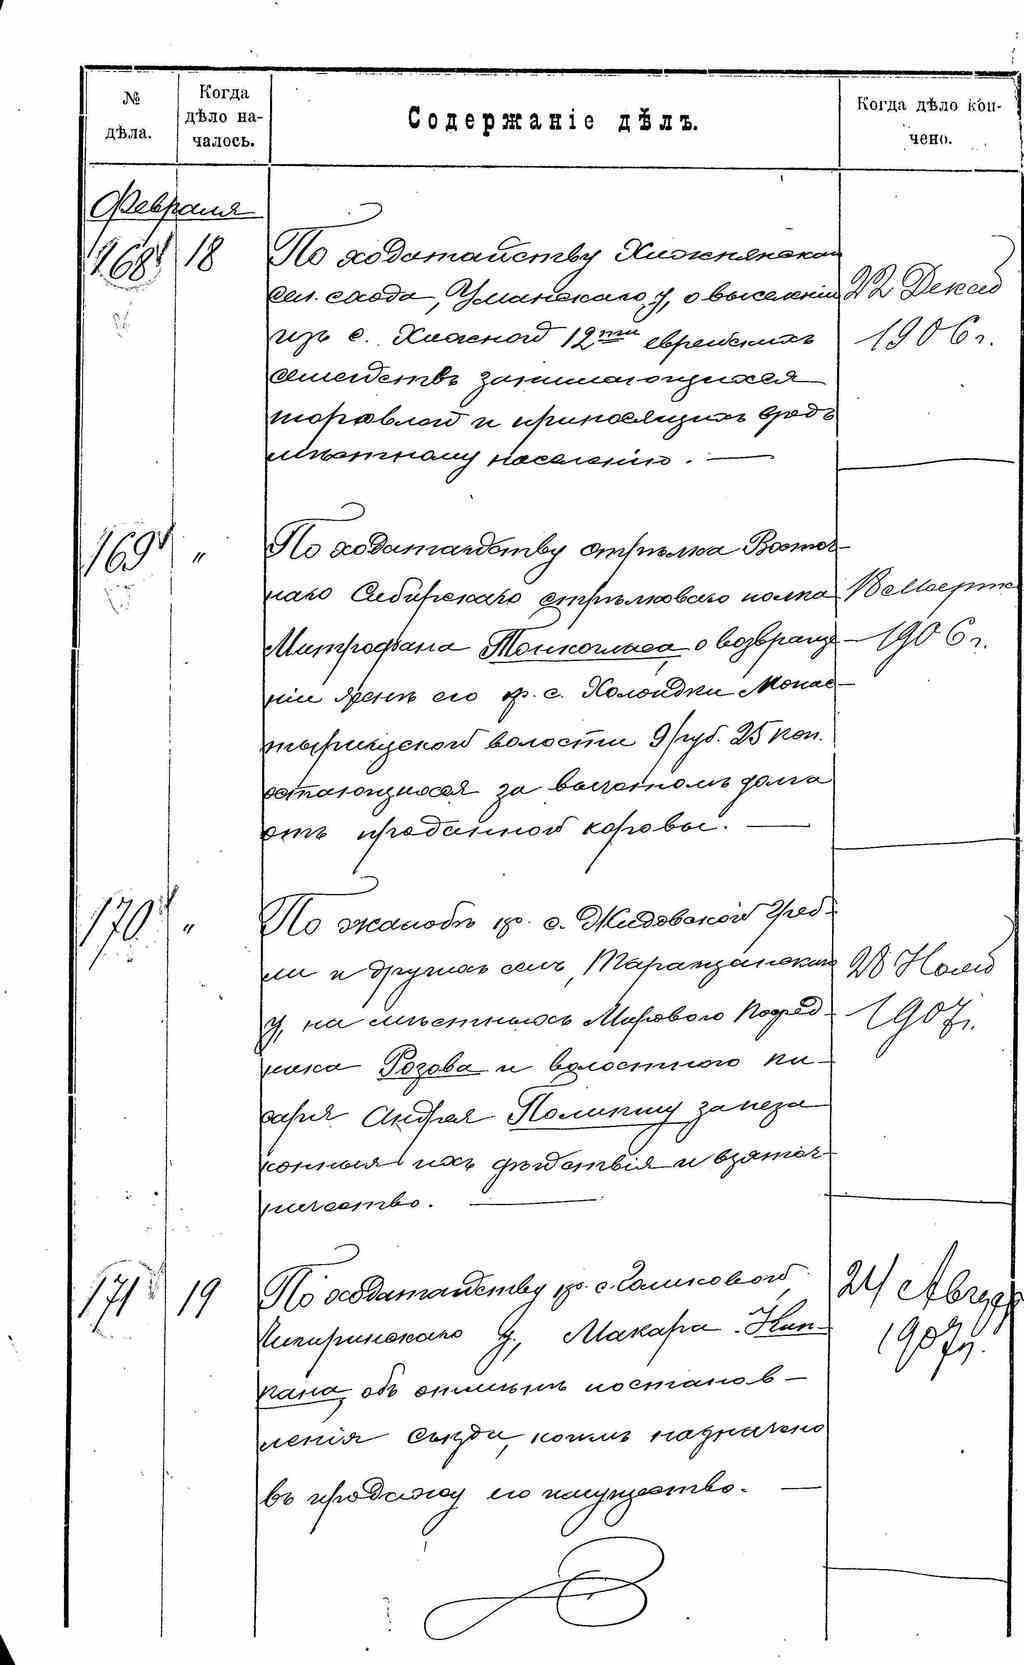 № дѣла.
Когда дѣло на-
чалось.
Содержаніе дѣлъ.
Когда дѣло кон-
чено.
Февраля
168 18 По ходатайству Хижнянскаго
сел. схода, Уманскаго у, о выселеніи
изъ с. Хижной 12ти еврейскихъ
семействъ занимающихся
торговлей и приносящихъ вредъ
мѣстному населенію. —
22 Декаб
1906 г.
169 " По ходатайству стрѣлка Восточ-
наго Сибирскаго стрѣлковаго полка
Митрофана Тонкогласа, о возвраще-
ніи женѣ его кр. с. Монас-
тырищской волости 9 руб. 25 коп.
остающихся за вычетомъ долга
отъ проданной коровы. —
Марта
1906 г.
170 " По жалобѣ кр. с. Жидовской Греб-
ли и другихъ селъ, Таращанскаго
у, на мѣстныхъ Мирового Посред-
ника Розова и волостного пи-
саря Андрея за неза
конныя ихъ дѣйствія и взяточ-
ничество. —
28 Нояб
1907 г.
171 19 По ходатайству кр. с. Голиковой,
Чигиринскаго у, Макара
объ отмѣнѣ постанов-
ленія съѣзда, коимъ назначено
въ продажу его имущество. —
24 Август
1907 г.